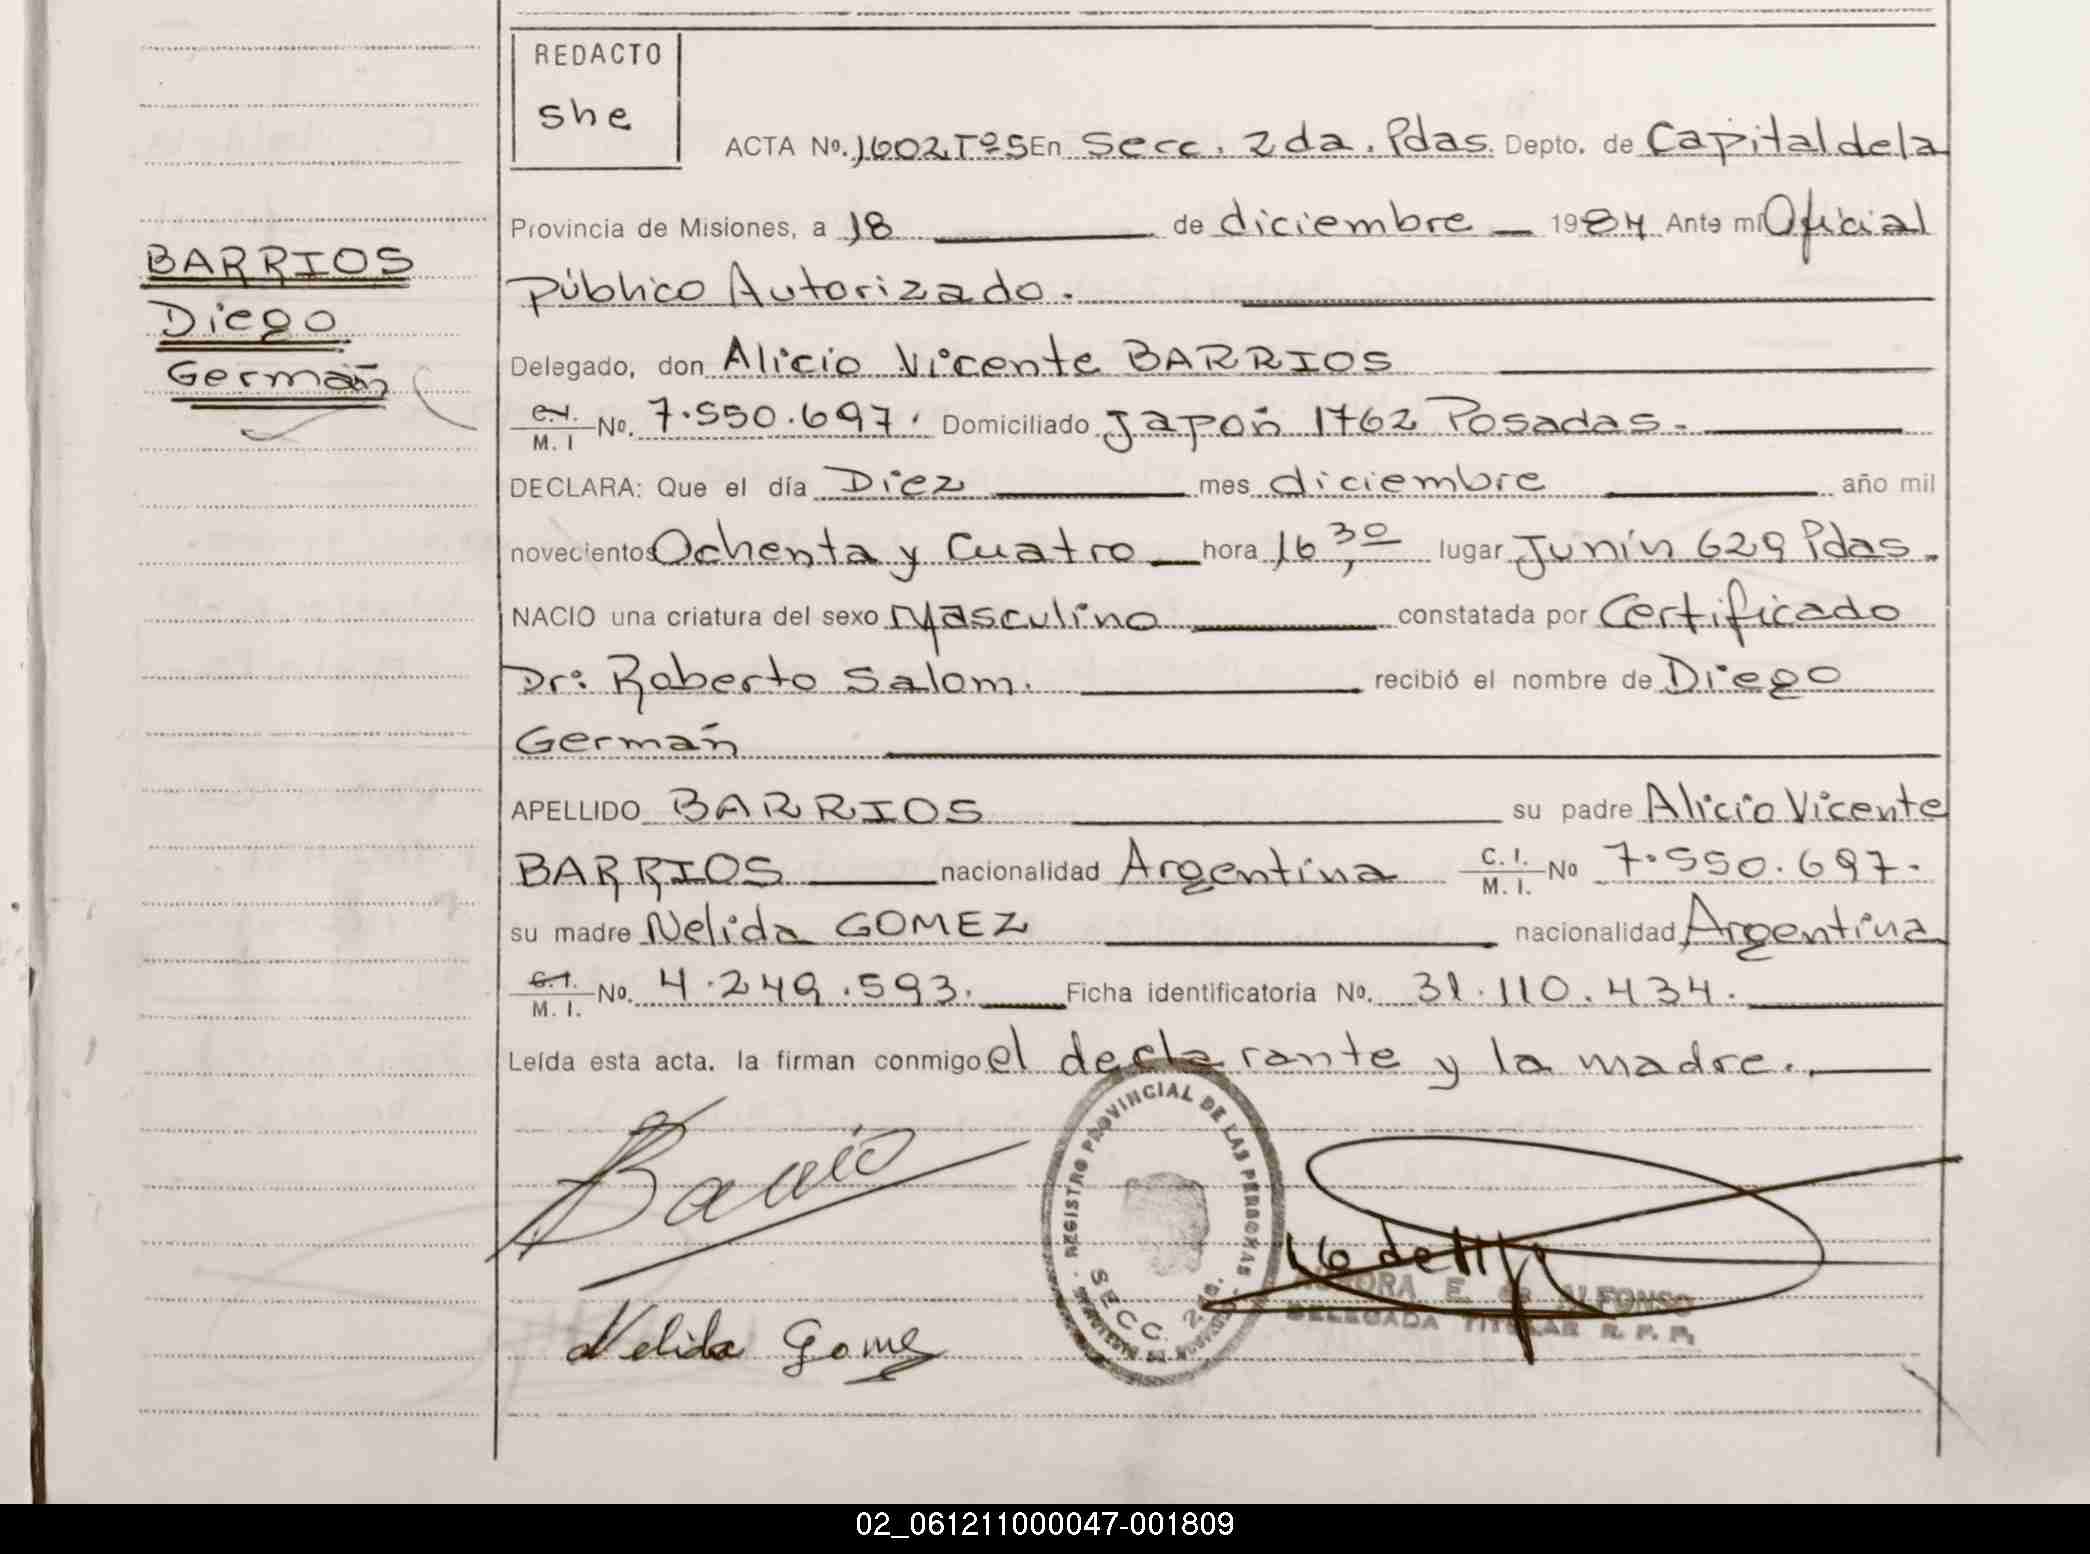 REDACTO
she
ACTA No. 1602 Tº 5 En Secc. 2da. Pdas. Depto. de Capital de la
Provincia de Misiones, a 18 de diciembre 1984 Ante mí Oficial
Público Autorizado.
BARRIOS
Diego
Germán
Delegado, don Alicio Vicente BARRIOS
C.I. M. I No. 7.550.697. Domiciliado Japón 1762 Posadas.
DECLARA: Que el día Diez mes diciembre año mil
novecientos Ochenta y Cuatro hora 16,30 lugar Junín 629 Pdas.
NACIO una criatura del sexo Masculino constatada por Certificado
Dr: Roberto Salom. recibió el nombre de Diego
Germán
APELLIDO BARRIOS su padre Alicio Vicente
BARRIOS nacionalidad Argentina C. I. M. I. No 7.550.697.
su madre Nelida GOMEZ nacionalidad Argentina
C.I. M. I. No. 4.249.593. Ficha identificatoria No. 31.110.434.
Leída esta acta, la firman conmigo el declarante y la madre.
Barrio
REGISTRO PROVINCIAL DE LAS PERSONAS
SECC. 2da.
AURORA E. de ALFONSO
DELEGADA TITULAR R. P. P.
Nelida Gomez
02_061211000047-001809